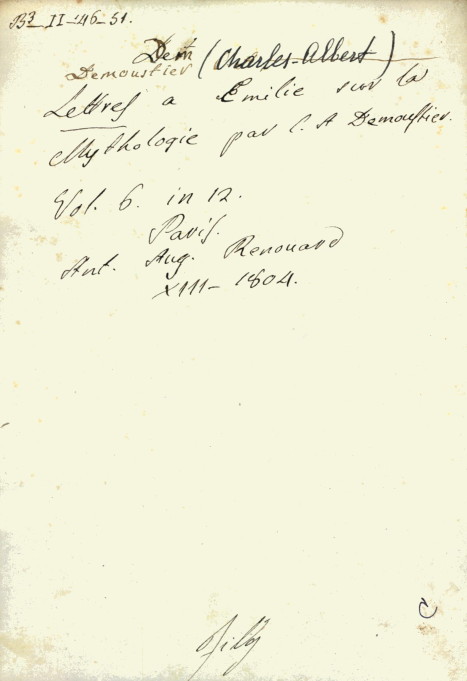 B3_II-46-51.
Dem (Charles-Albert)
Demoustier
Lettres a Emilie sur la
Mythologie par C. A Demoustier.
Vol. 6. in 12.
Paris.
Ant. Aug. Renouard
XIII- 1804.